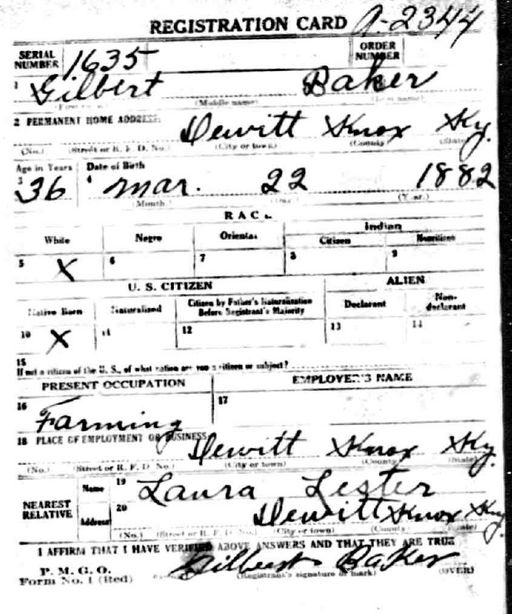 REGISTRATION CARD A-2344
SERIAL NUMBER 1635 ORDER NUMBER
1 Gilbert Baker
(Middle name)
2 PERMANENT HOME ADDRESS:
Dewitt Knox Ky.
(No.) (Street or R. F. D. No.) (City or town) (County) (State)
Age in Years Date of Birth
3 36 4 Mar. 22 1882
(Month) (Year)
RACE
White Negro Oriental Indian
Citizen Noncitizen
5 X 6 7 8 9
U. S. CITIZEN ALIEN
Native Born Naturalized Citizen by Father's Naturalization Before Registrant's Majority Declarant Non-declarant
10 X 11 12 13 14
15
If not a citizen of the U. S., of what nation are you a citizen or subject?
PRESENT OCCUPATION EMPLOYER'S NAME
16 Farming 17
18 PLACE OF EMPLOYMENT OR BUSINESS
Dewitt Knox Ky.
(No.) (Street or R. F. D. No.) (City or town) (County) (State)
NEAREST RELATIVE Name 19 Laura Lester
Address 20 Dewitt Knox Ky
(No.) (Street or R. F. D. No.) (City or town) (County) (State)
I AFFIRM THAT I HAVE VERIFIED ABOVE ANSWERS AND THAT THEY ARE TRUE
P. M. G. O.
Form No. 1 (Red) Gilbert Baker
(Registrant's signature or mark) (OVER)